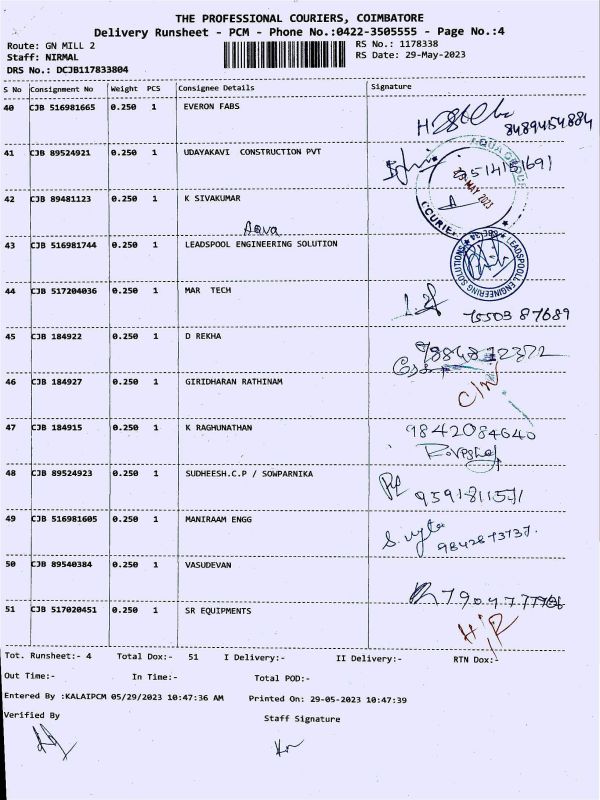 THE PROFESSIONAL COURIERS, COIMBATORE
Delivery Runsheet - PCM - Phone No.:0422-3505555 - Page No.:4
Route: GN MILL 2
RS No.: 1178338
Staff: NIRMAL
RS Date: 29-May-2023
DRS No.: DCJB117833804
S No Consignment No Weight PCS Consignee Details Signature
40 CJB 516981665 0.250 1 EVERON FABS
8489454884
41 CJB 89524921 0.250 1 UDAYAKAVI CONSTRUCTION PVT
AQUA GROUP
29 MAY 2023
COURIER
42 CJB 89481123 0.250 1 K SIVAKUMAR
Aqua
43 CJB 516981744 0.250 1 LEADSPOOL ENGINEERING SOLUTION
LEADSPOOLL ENGINEERING SOLUTIONS
44 CJB 517204036 0.250 1 MAR TECH
75503 87689
45 CJB 184922 0.250 1 D REKHA
46 CJB 184927 0.250 1 GIRIDHARAN RATHINAM
C/N
47 CJB 184915 0.250 1 K RAGHUNATHAN
9842084640
48 CJB 89524923 0.250 1 SUDHEESH.C.P / SOWPARNIKA
9591811571
49 CJB 516981605 0.250 1 MANIRAAM ENGG
9842873737.
50 CJB 89540384 0.250 1 VASUDEVAN
51 CJB 517020451 0.250 1 SR EQUIPMENTS
Tot. Runsheet:- 4 Total Dox:- 51 I Delivery:- II Delivery:- RTN Dox:-
Out Time:- In Time:- Total POD:-
Entered By :KALAIPCM 05/29/2023 10:47:36 AM Printed On: 29-05-2023 10:47:39
Verified By Staff Signature